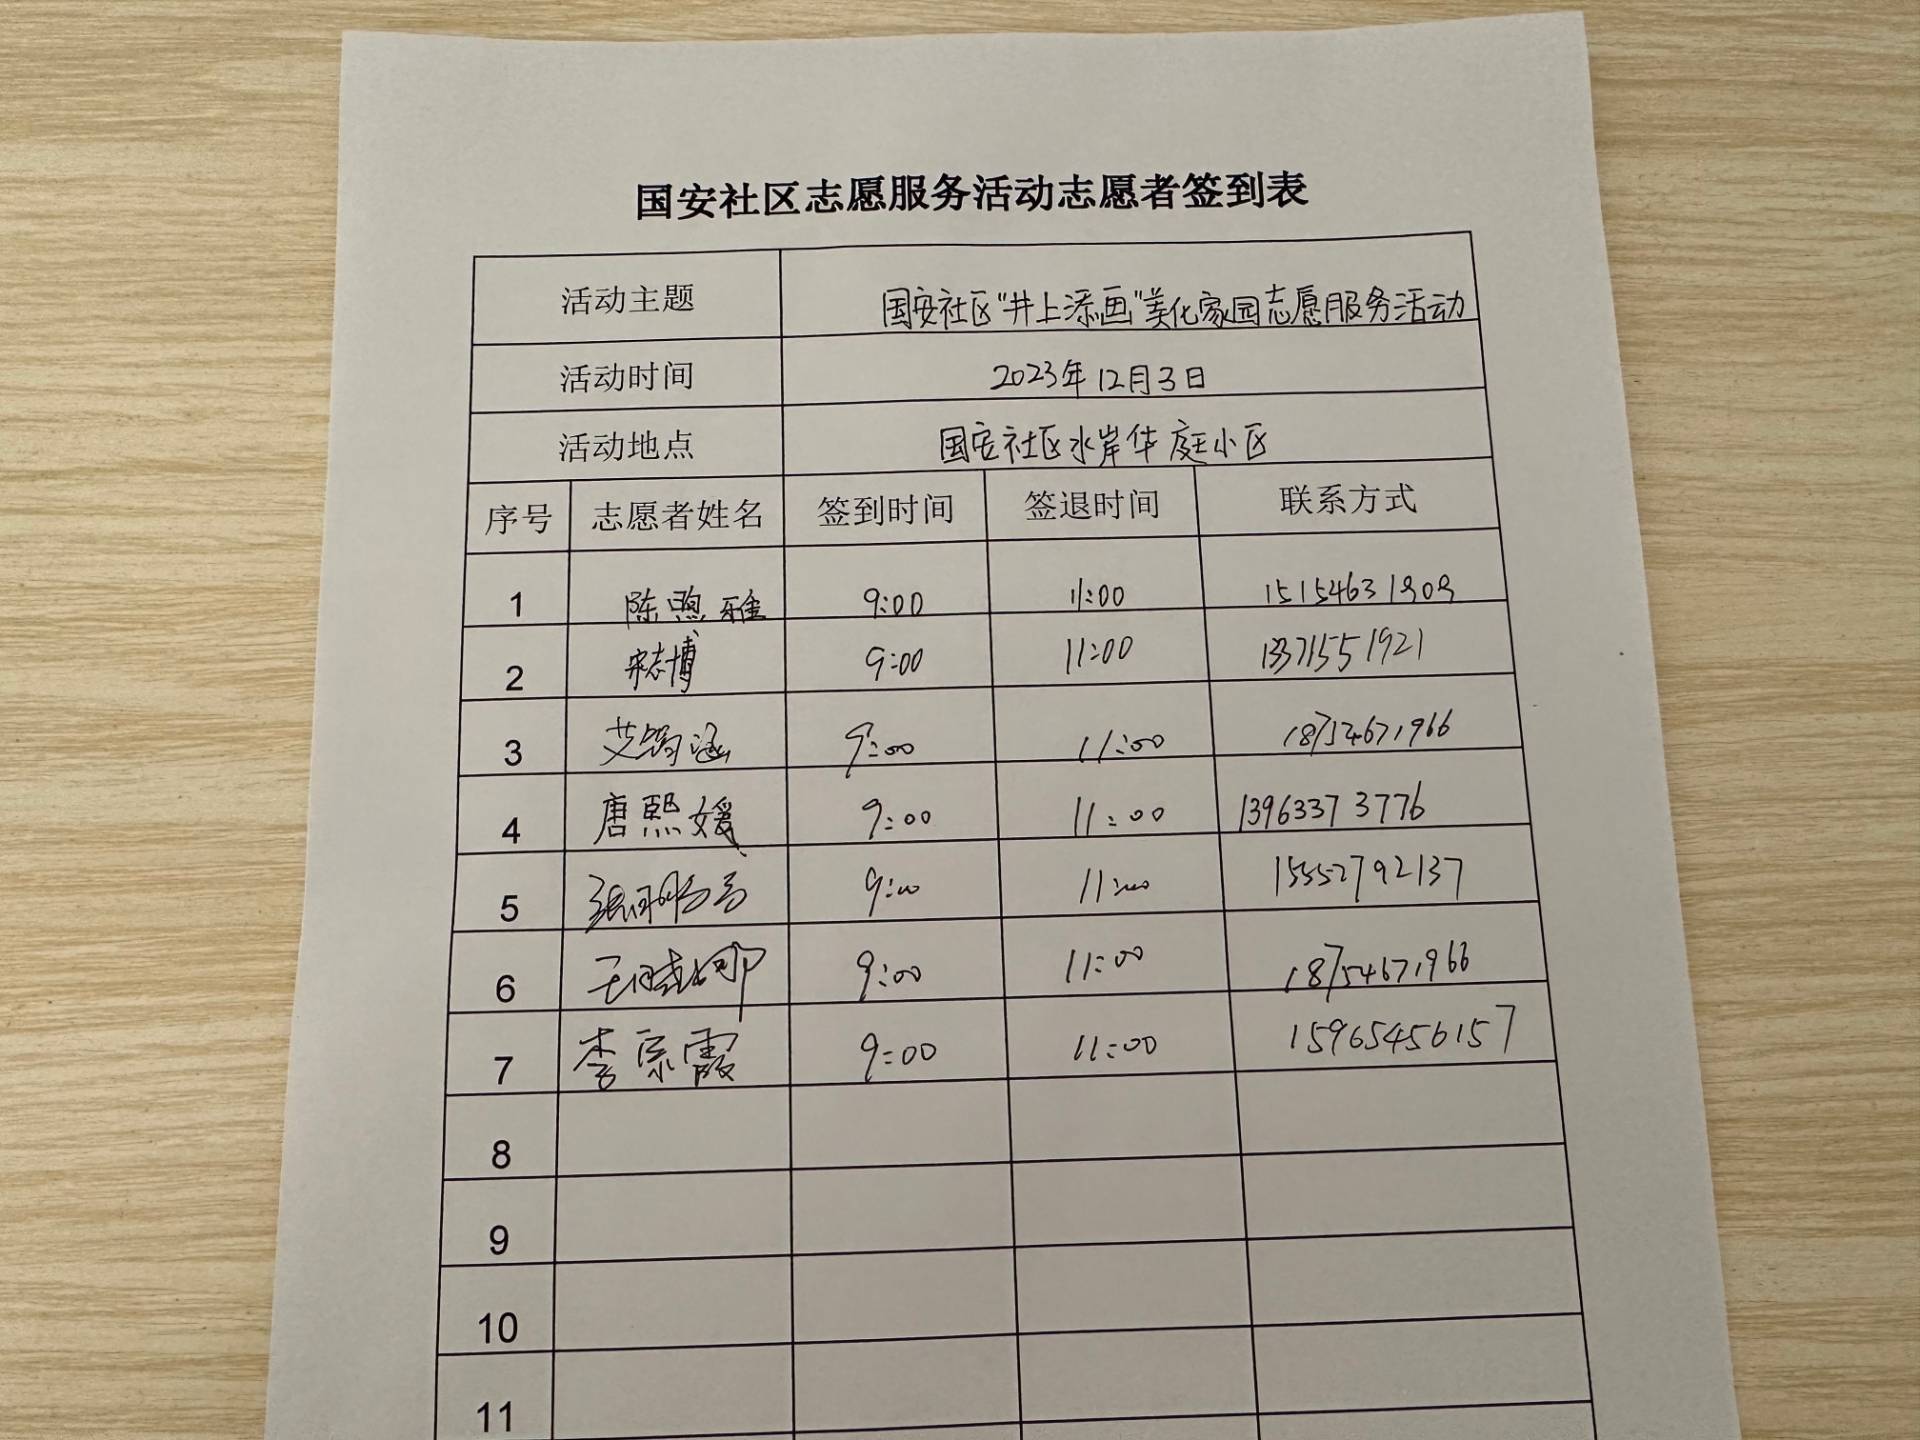 国安社区志愿服务活动志愿者签到表
活动主题 国安社区"井上添画"美化家园志愿服务活动
活动时间 2023年12月3日
活动地点 国安社区水岸华庭小区
序号 志愿者姓名 签到时间 签退时间 联系方式
1 陈煦雅 9:00 11:00 15154631909
2 宋志博 9:00 11:00 13371551921
3 9:00 11:00 18754671966
4 唐熙媛 9:00 11:00 13963373776
5 9:00 11:00 15552792137
6 9:00 11:00 18754671966
7 李宗霞 9:00 11:00 15965456157
8
9
10
11